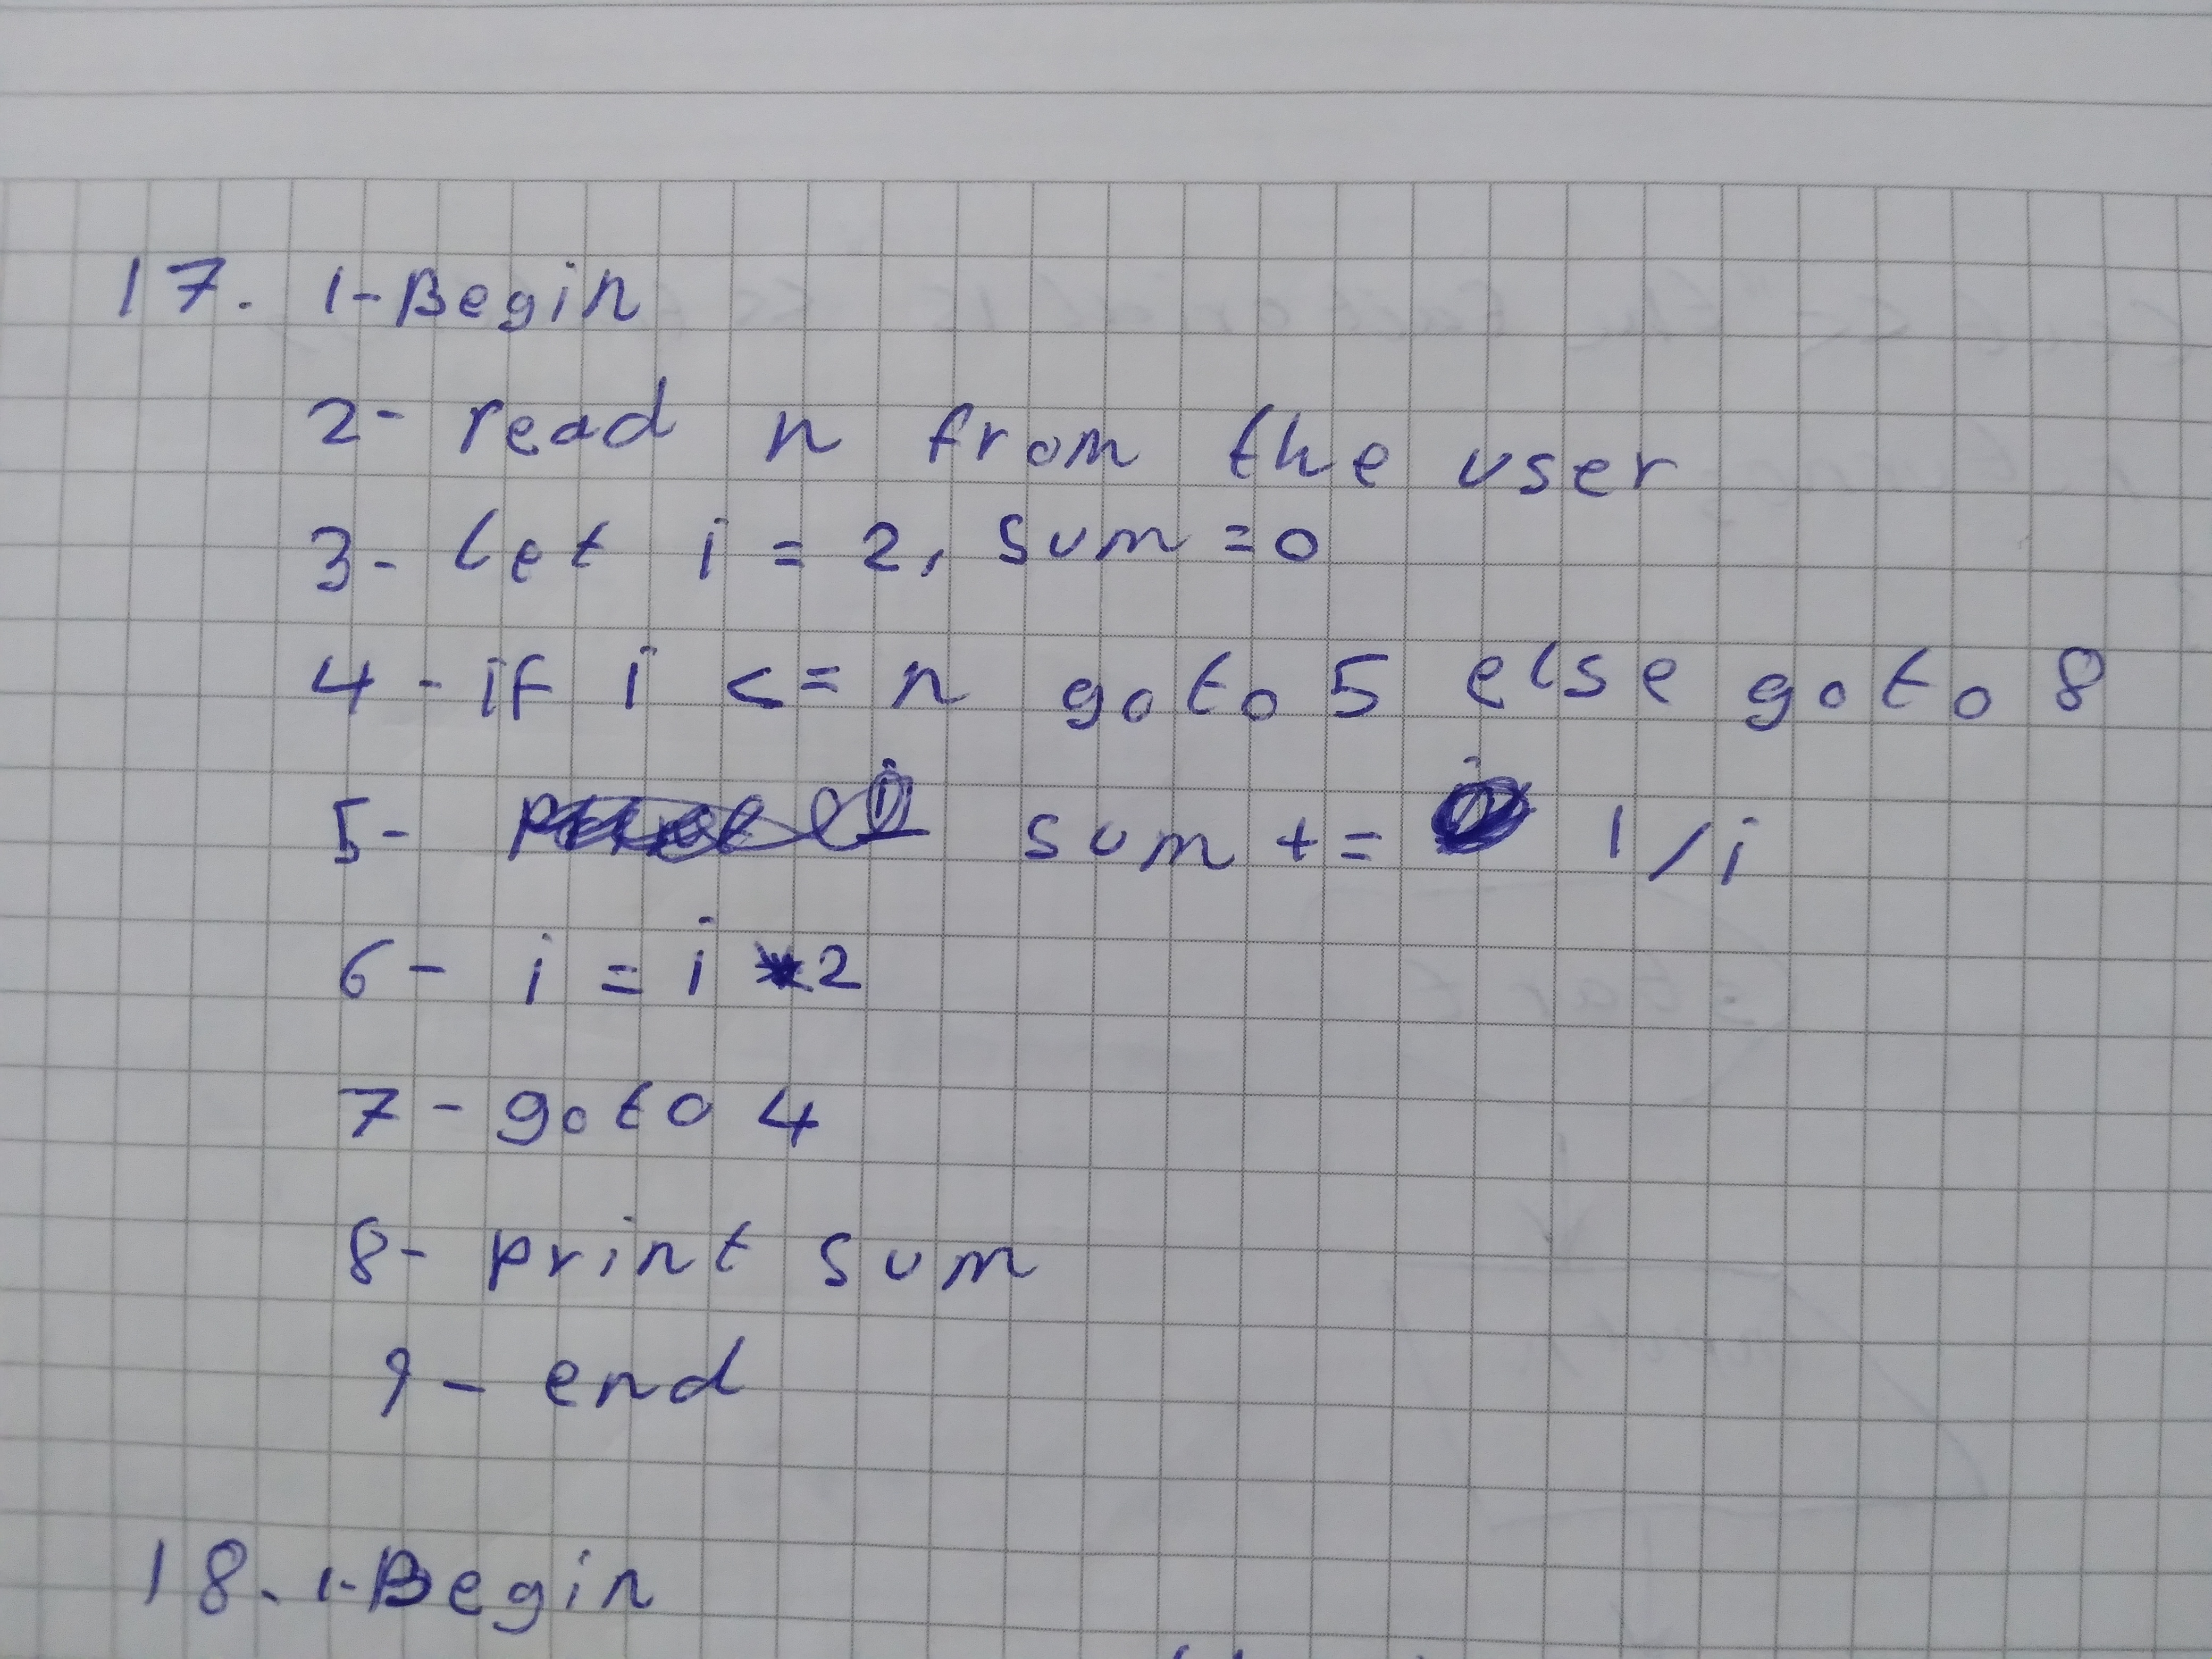 17. 1-Begin
2- read n from the user
3- let i = 2, sum = 0
4 - if i <= n goto 5 else goto 8
5- sum += 1/i
6- i = i *2
7- goto 4
8- print sum
9- end
18. 1-Begin